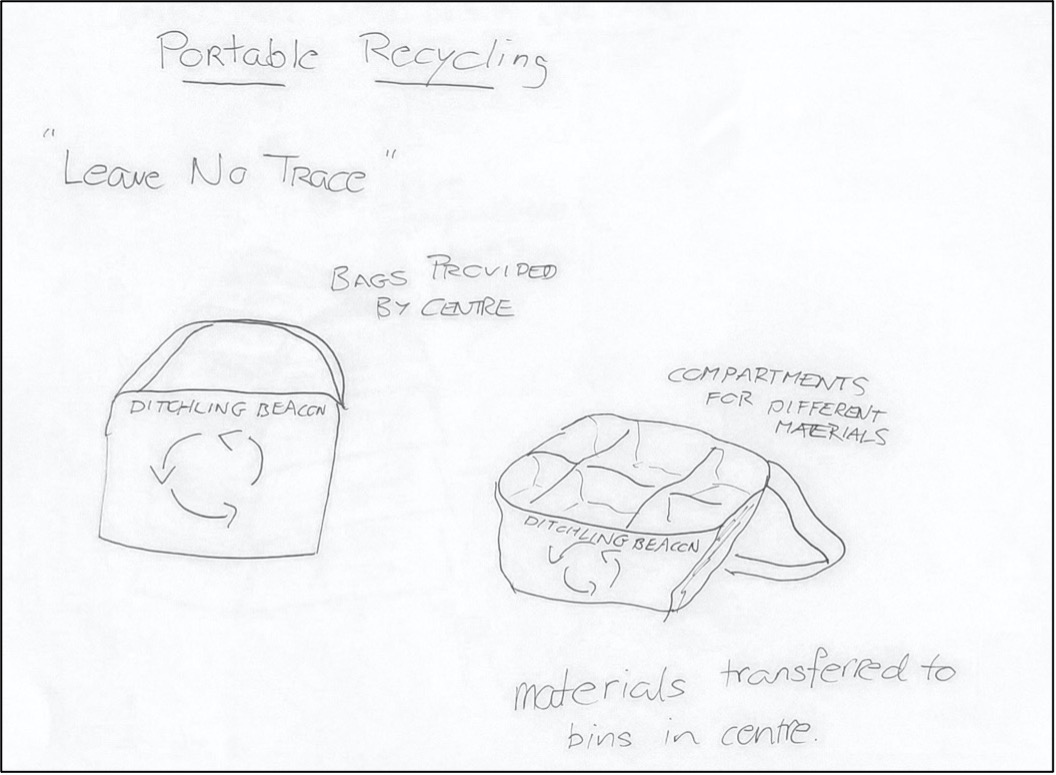 Portable Recycling
"Leave No Trace"
BAGS PROVIDED
BY CENTRE
DITCHLING BEACON
COMPARTMENTS
FOR DIFFERENT
MATERIALS
DITCHLING BEACON
materials transferred to
bins in centre.